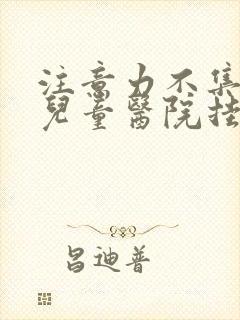 注意力不集
兒童醫院挂
昌迪普